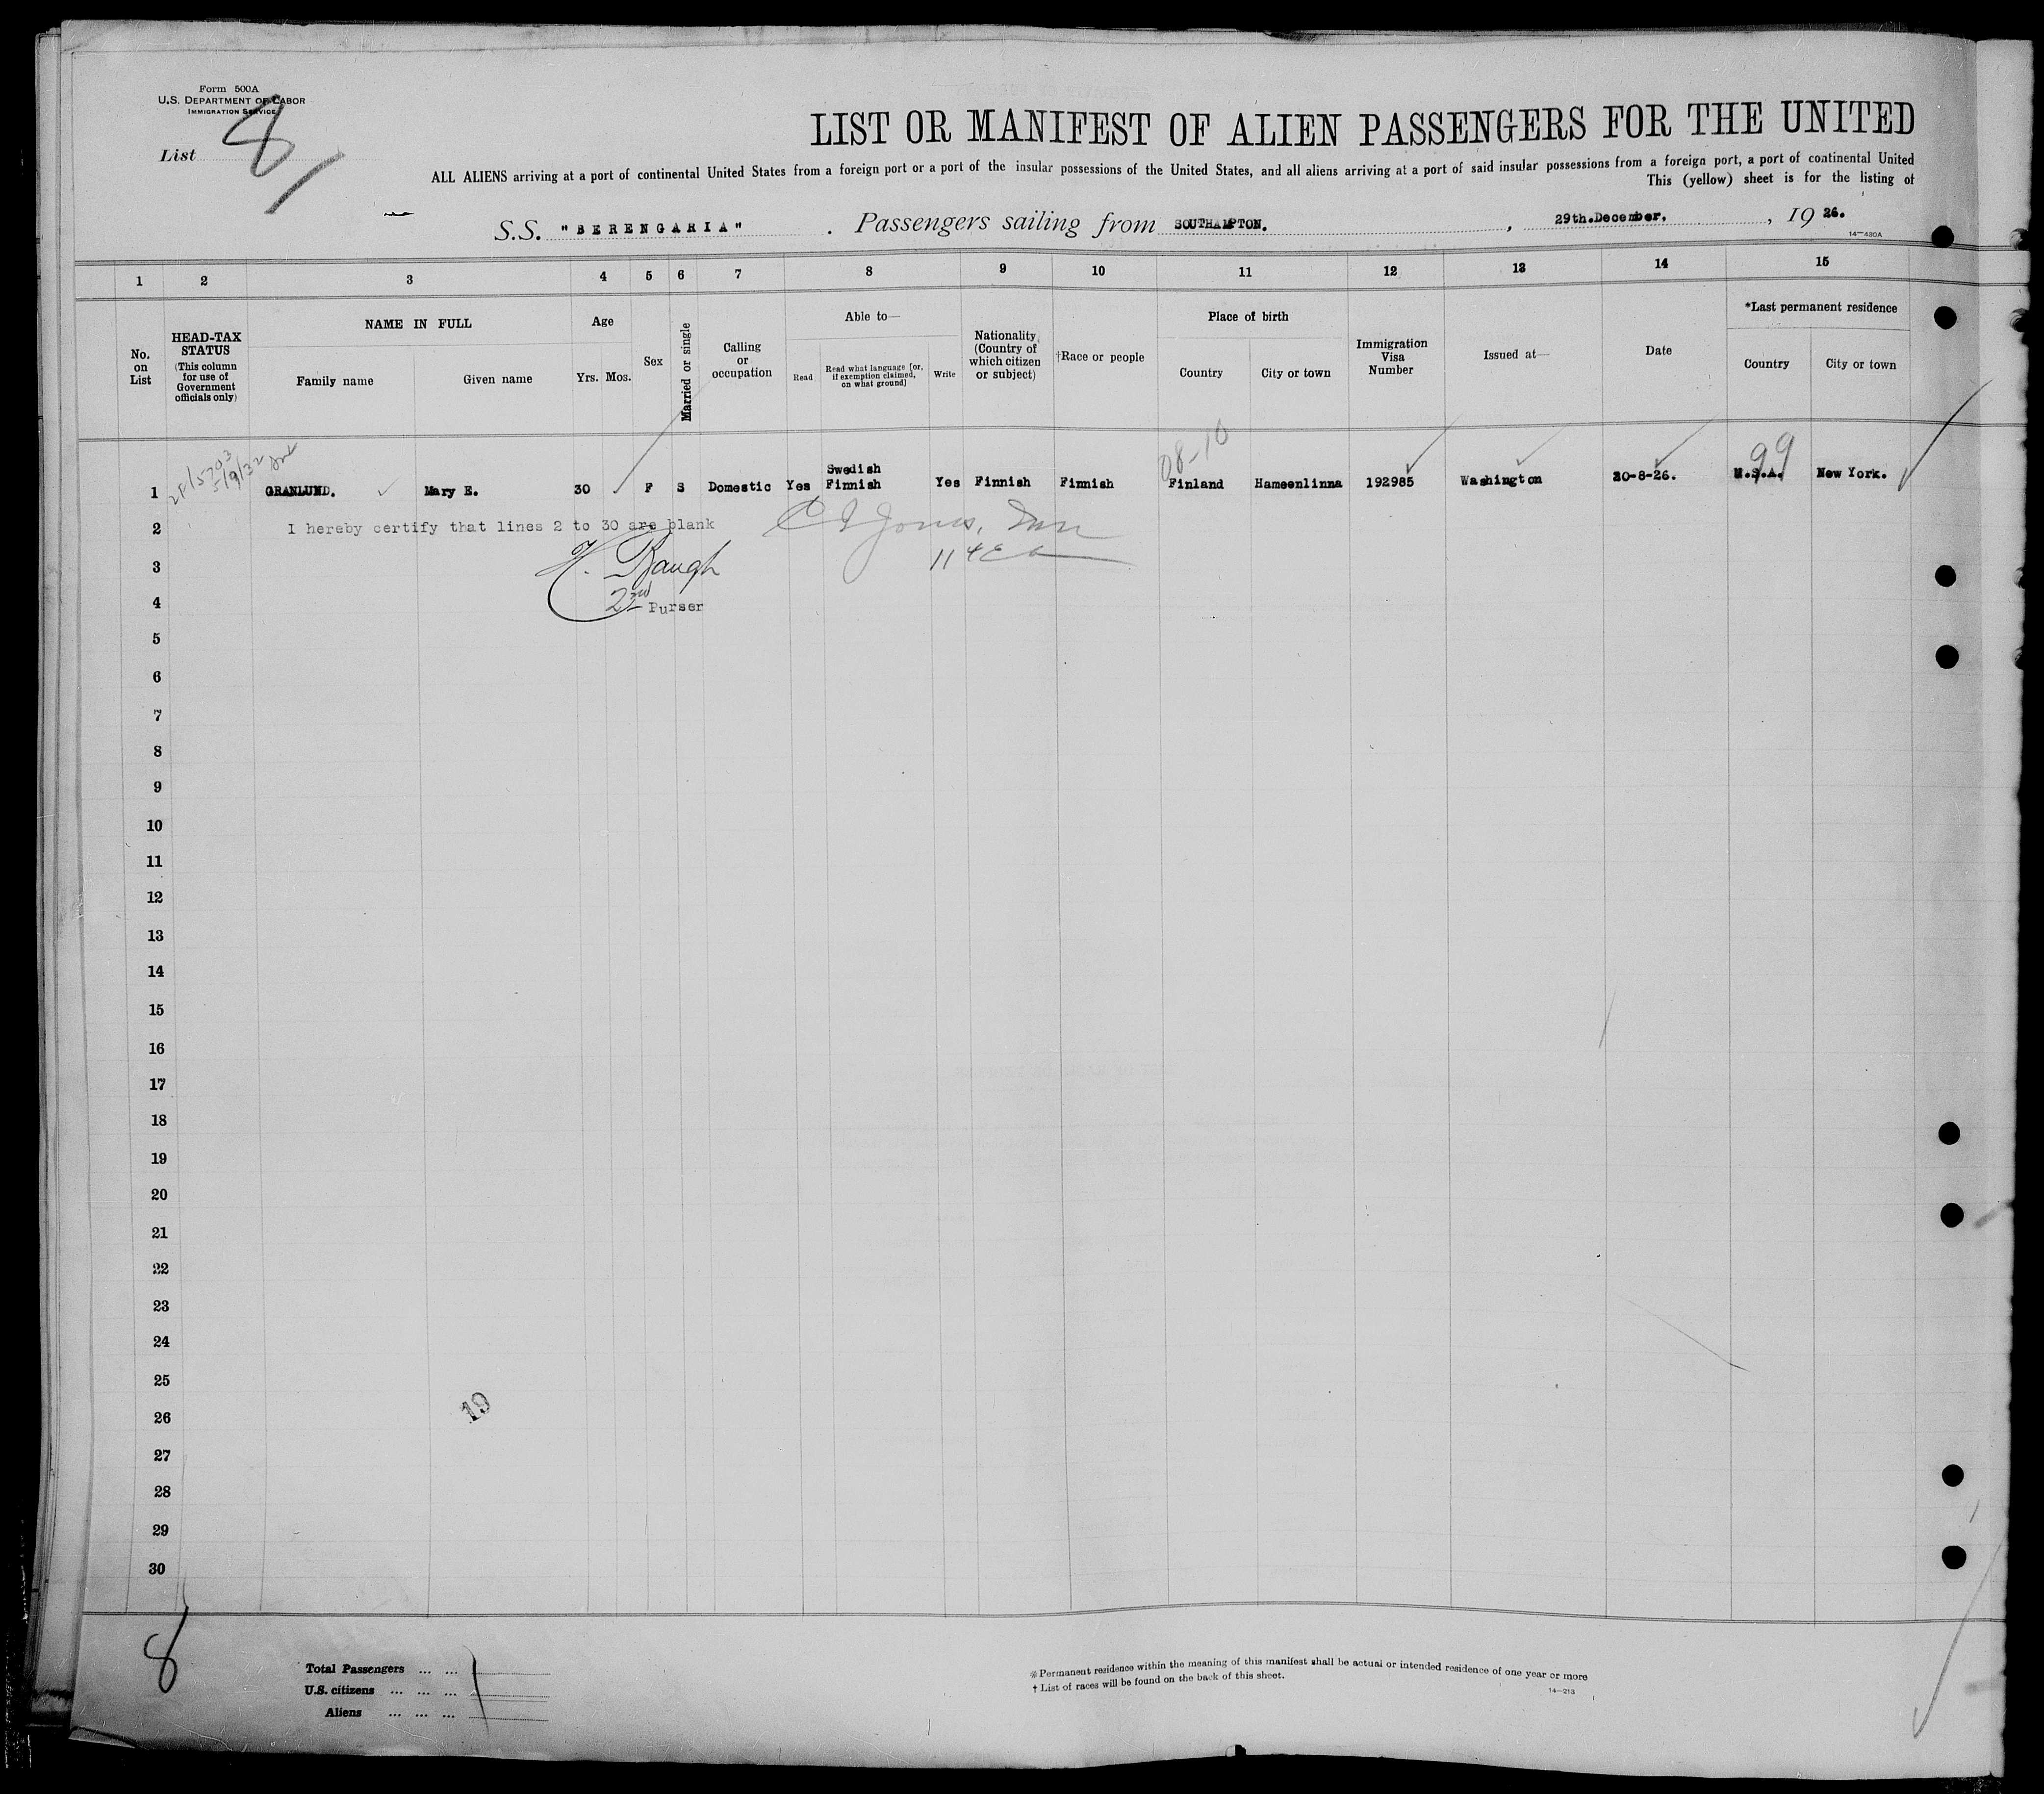 Form 500A
U.S. DEPARTMENT OF LABOR
IMMIGRATION SERVICE
List 8
LIST OR MANIFEST OF ALIEN PASSENGERS FOR THE UNITED
ALL ALIENS arriving at a port of continental United States from a foreign port or a port of the insular possessions of the United States, and all aliens arriving at a port of said insular possessions from a foreign port, a port of continental United
This (yellow) sheet is for the listing of
S.S. "BERENGARIA" . Passengers sailing from SOUTHAMPTON. , 29th.December. , 19 26.
14—430A
1 2 3 4 5 6 7 8 9 10 11 12 13 14 15
No. on List
HEAD-TAX STATUS
(This column for use of Government officials only)
NAME IN FULL
Family name Given name
Age
Yrs. Mos.
Sex
Married or single
Calling or occupation
Able to—
Read
Read what language [or, if exemption claimed, on what ground]
Write
Nationality (Country of which citizen or subject)
†Race or people
Place of birth
Country City or town
Immigration Visa Number
Issued at—
Date
*Last permanent residence
Country City or town
08-10
99
1 GRANLUND. Mary E. 30 F S Domestic Yes Swedish Finnish Yes Finnish Finnish Finland Hameenlinna 192985 Washington 20-8-26. U.S.A. New York.
2 I hereby certify that lines 2 to 30 are blank
3 H. Baugh
4 2nd Purser
5
6
7
8
9
10
11
12
13
14
15
16
17
18
19
20
21
22
23
24
25
26
19
27
28
29
30
8
Total Passengers ... ...
U.S. citizens ... ... ...
Aliens ... ... ...
* Permanent residence within the meaning of this manifest shall be actual or intended residence of one year or more
† List of races will be found on the back of this sheet.
14—213